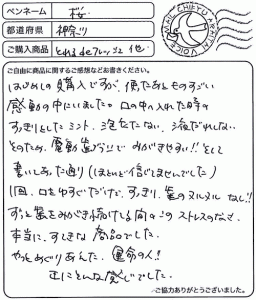 ペンネーム 桜
都道府県 神奈川
ご購入商品 とれるdeフレッシュ 他
MAIL CHIETU ARIGATAI VOICE
ご自由に商品に関するご感想などお書きください。
はじめての購入ですが、使たあとものすごい
感動の中にいました。口の中に入れた時の
すっきりとしたミント、泡立たない、液だれしない
そのため、電動歯ブラシでみがきやすい!!そして
書いてあった通り(ほとんど信じてませんでした)
1回、口をゆすぐだけで、すっきり、歯のヌルヌルなし!!
ずっと歯をみがき続けてる間の このストレスのなさ、
本当に、すてきな商品でした。
やっとめぐりあえた、運命の人!!
正にそんな感じでした。
ご協力ありがとうございました。